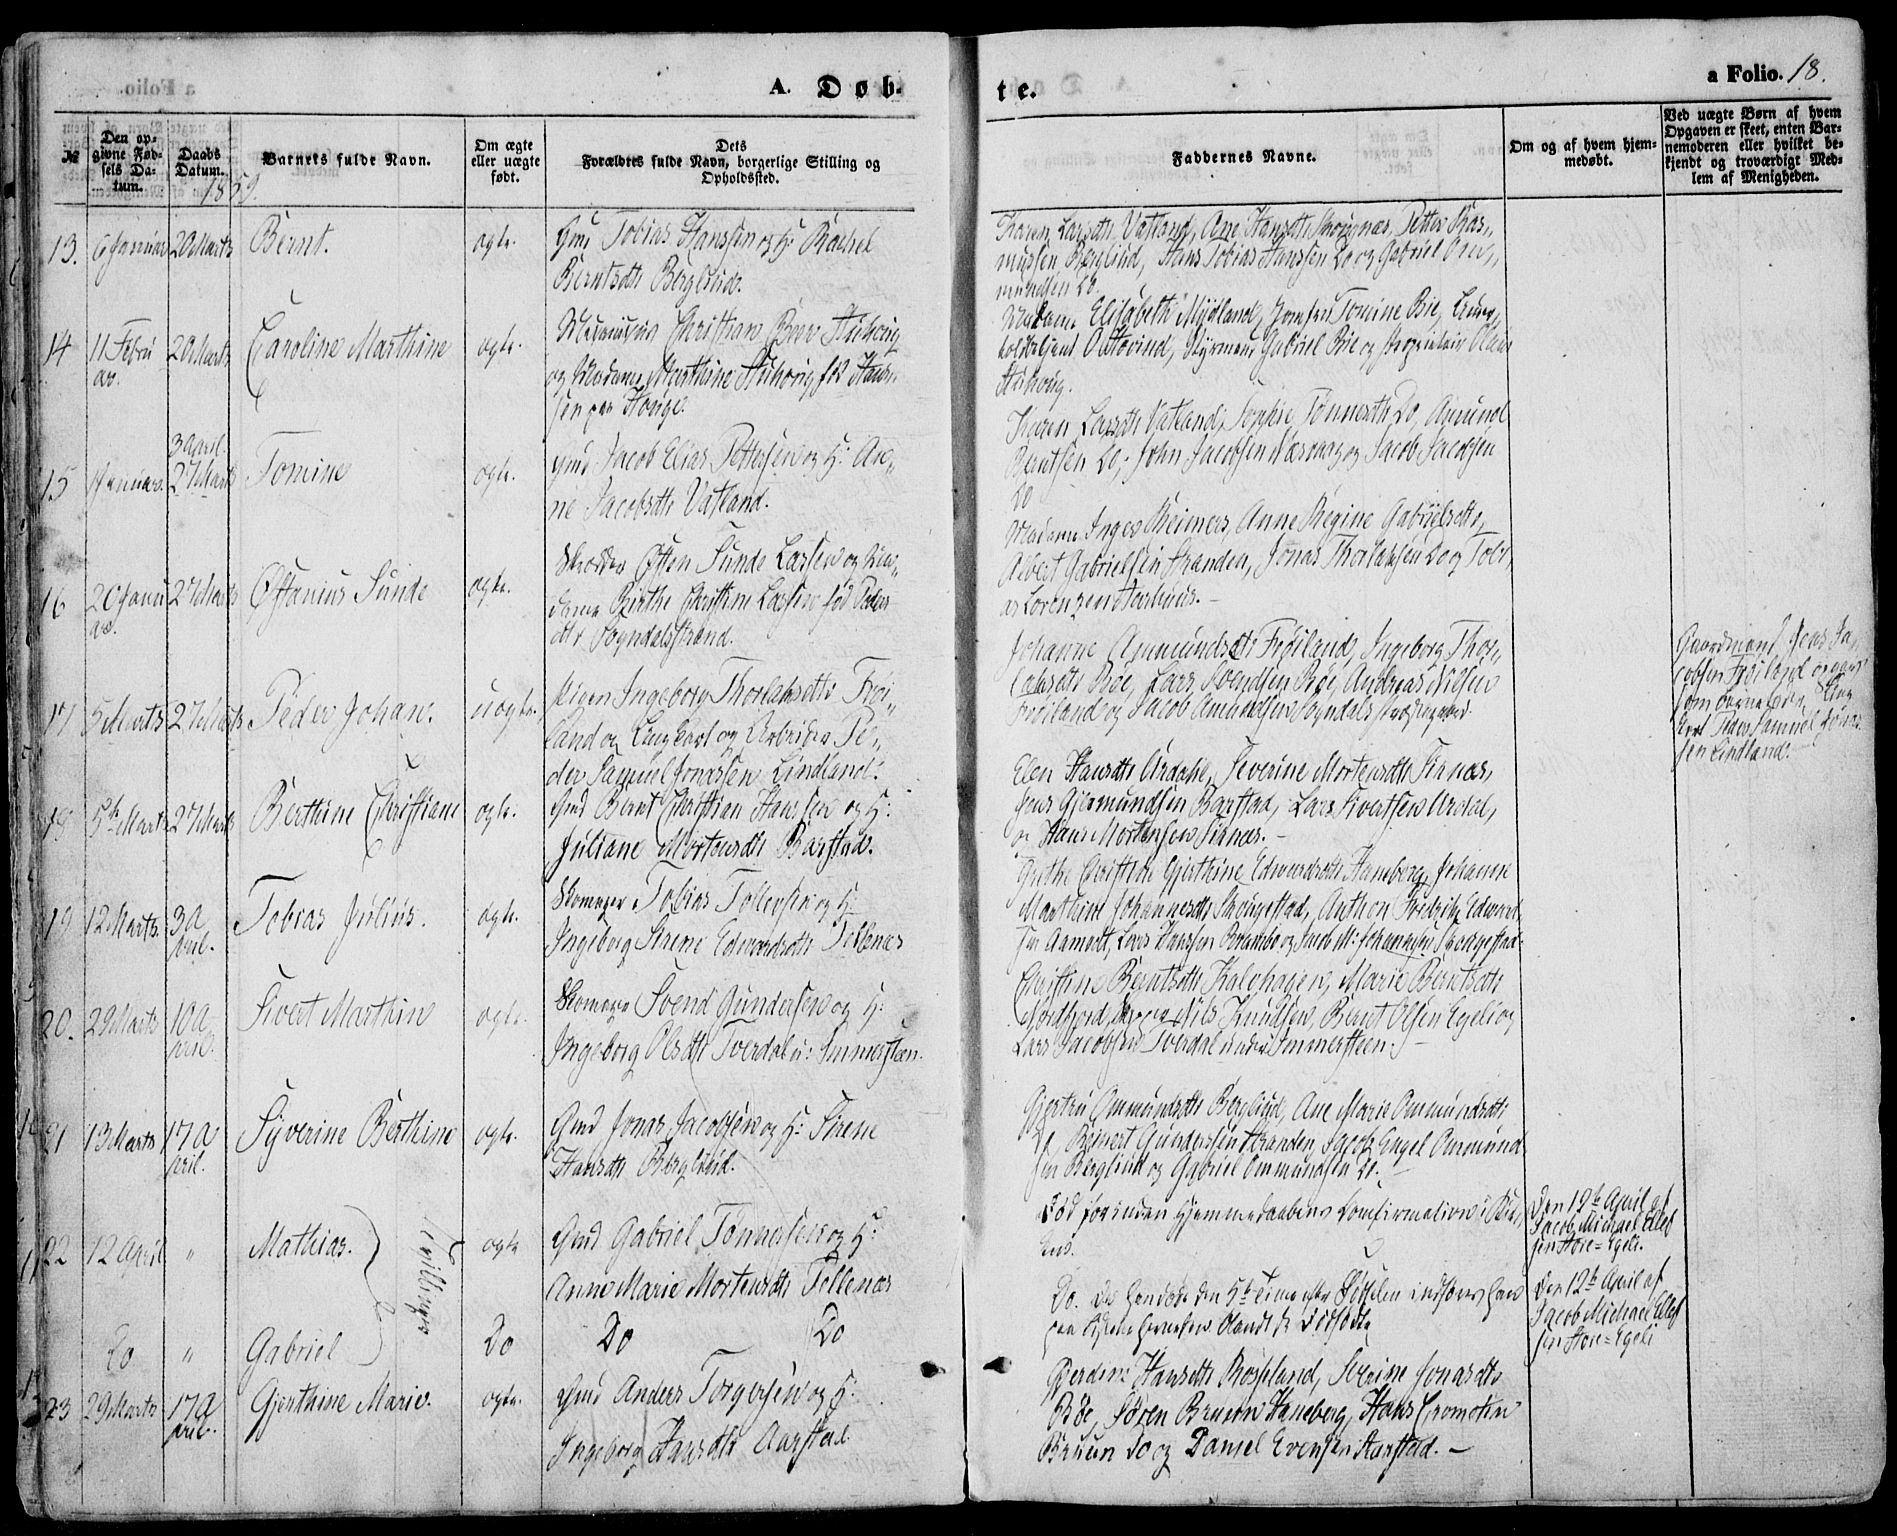 A. Døb-
te.
a Folio. 18.
№
Den op-
givne Fød-
sels Da-
tum.
Daabs
Datum.
1859.
Barnets fulde Navn.
Om ægte
eller uægte
født.
Dets
Forældres fulde Navn, borgerlige Stilling og
Opholdssted.
Faddernes Navne.
Om og af hvem hjem-
medøbt.
Ved uægte Børn af hvem
Opgaven er skeet, enten Bar-
nemoderen eller hvilket be-
kjendt og troværdigt Med-
lem af Menigheden.
13.
6 Januar
20 Marts
Bernt.
ægte.
Gmd Tobias Hanssen og H: Rachel
Berntsdtr Bergliud.
Karen Larsdtr Vatland, Ane Hansdtr Petter Ras-
mussen Berglind, Hans Tobias Hanssen Do og Gabriel Om-
mundsen Do.
14
11 Febru
ar.
20 Marts
Caroline Marthine
ægte.
Christian
og Madame Marthine født Hans-
sen paa Hauge.
Madame Elisabeth Mydland, Jomfru Tomine Bie,
Styrmand Gabriel Bie og
15
Januar.
3 April.
27 Marts
Tomine
ægte.
Gmd Jacob Elias Pettersen og H: An-
ne Jacobsdtr Vatland.
Karen Larsdtr Vatland, Sophie Tønnesdtr Do, Amund
Berntsen Do, John Jacobsen og Jacob Jacobsen
Do
16
20 Janu
ar.
27 Marts
Østanius Sunde
ægte.
Østen Sunde Larsen og Ma-
dame Birthe Christine Larsen fød Peders
dtr Sogndalsstrand.
Madame Inger Reimers, Anne Regine Gabrielsdtr,
Albert Gabrielsen Stranden, Jonas Thorlaksen Do og Tobi-
as Lorenzen Aarhuus. —
17
5 Marts
27 Marts
Peder Johan.
uægte.
Pigen Ingeborg Thorlaksdtr Frøi-
land og Ungkarl og Arbeider Pe-
der Samuel Jonassen Lindland.
Johanne Ammundsdtr Frøiland, Ingeborg Thor-
laksdtr Bøe, Lars Svendsen Bøe, Andreas Nilsen
Frøiland og Jacob
Gaardmand Jens Ja-
cobsen Frøiland
som Barnefader Ung
karl Peder Samuel Jonas-
sen Lindland.
18
5te Marts
27 Marts
Berthine Christiane
ægte.
Gmd Bernt Christian Hanssen og H:
Juliane Mortensdtr Barstad.
Elen Hansdtr Ardahl, Severine Mortensdtr
Jens Gjermundsen Barstad, Lars Sivertsen Ardal,
og Hans Mortensen
19
12 Marts
3 A
pril.
Tobias Julius.
ægte.
Skomager Tobias Tollevsen og H:
Ingeborg Sirene Edvardsdtr Tellenæs
Grethe Christine Gjerthine Edvardsdtr Haneberg, Johanne
Marthine Johannesdtr Skougestad, Anthon Fredrik Edvard-
sen Aamodt, Lars Hanssen og Jacob M: Johannessen Skougestad.
20.
29 Marts
10 A
pril.
Sivert Marthin
ægte.
Skomager Svend Gundersen og H:
Ingeborg Olsdtr Tverdal u: Immersteen.
Christine Berntsdtr Kalehagen, Marie Berntsdtr
Nordfjord, Nils Knudsen, Bernt Olsen Egelie og
Lars Jacobsen Tverdal under Immersteen. —
21
13 Marts
17 A
pril.
Syverine Berthine
ægte.
Gmd Jonas Jacobsen og H: Sirene
Hansdtr Berglind.
Gjertru Ommundsdtr Berglind, Ane Marie Ommundsdtr
Do, Reinert Gundersen Stranden, Jacob Engel Ommund-
sen Berglind og Gabriel Ommundsen Do. —
22
12 April
"
Mathias.
Tvillinger
ægte
Gmd Gabriel Tønnesen og H:
Anne Marie Mortensdtr Tellenæs
Død forinden Hjemmedaabens Confirmation i Kir-
ken.
Den 12te April af
Jacob Michael Ellef
sen Store-Egeli.
Do
"
Gabriel
Do
Do Do
Do. den 5te
Den 12te April af
Jacob Michael Ellef
sen Store-Egeli
23
29 Marts
17 A
pril.
Gjerthine Marie.
ægte.
Gmd Anders Torgersen og H:
Ingeborg Hansdtr Aarstad.
Hansdtr Røsseland, Severine Jonasdtr
Bøe, Søren Bruun Haneberg, Hans
Bruun Do og Daniel Evensen Aarstad. —